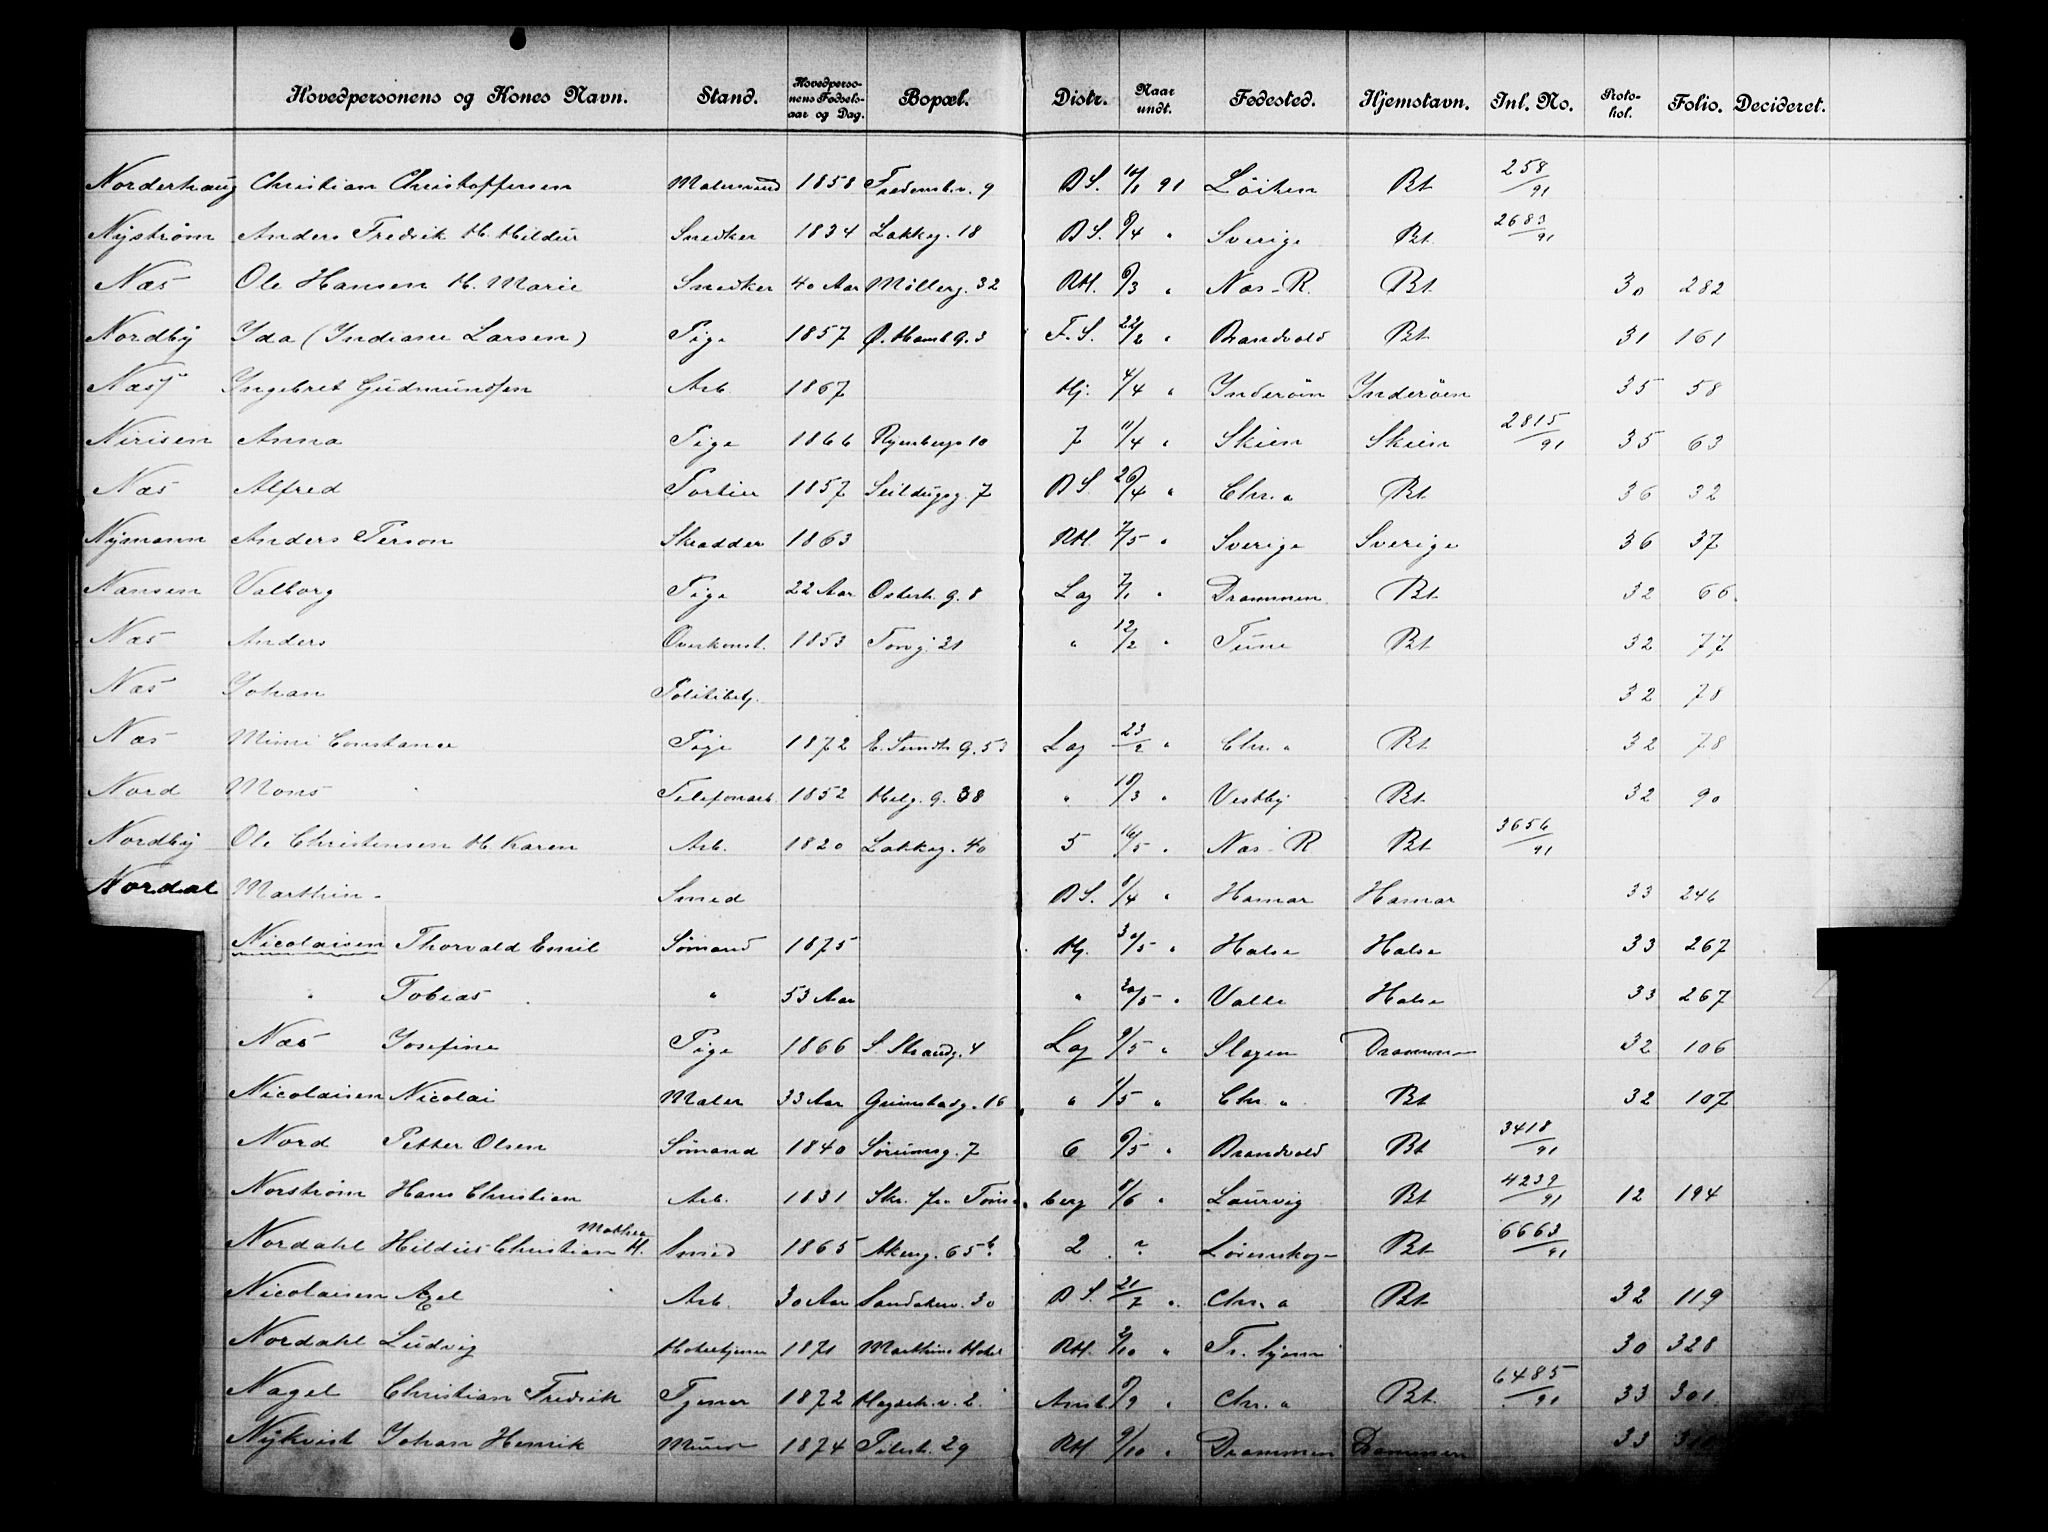 Hovedpersonens og Kones Navn. Stand. Hovedpersonens Fødselsaar og Dag. Bopæl. Distr. Naar undt. Fødested. Hjemstavn. Inl. No. Protokol. Folio. Decideret.
Norderhaug Christian Christoffersen 1858 9 D S. 91 Löiten Bt 258/91
Nystrøm Anders Fredrik H. Hildur Snedker 1834 Lakkeg. 18 D S. /4 " Sverige Bt. 2683/91
Næs Ole Hansen H. Marie Snedker 40 Aar Mölleg. 32 RH. /3 " Næs-R. Bt. 30 282
Nordby Ida (Indiane Larsen) Pige 1857 3 F. S. 22/2 " Brandvold Bt 31 161
Næss Ingebret Gudmundsen Arb. 1867 Hj. 4/4 " Inderöen Inderöen 35 58
Nirisen Anna Pige 1866 10 7 11/4 " Skien Skien 2815/91 35 63
Næs Alfred Portier 1857 Seildugsg. 7 D S. 26/4 " Chr.a Bt 36 32
Nymann Anders Person Skrædder 1863 RH. 7/5 " Sverige Sverige 36 37
Nansen Valborg Pige 22 Aar Osterh. g. 8 Lag 7/1 " Drammen Bt 32 66
Næs Anders Overkonst. 1853 Torvg. 21 " 12/2 " Tune Bt 32 77
Næs Johan Politibetj. 32 78
Næs Mimi Constance Pige 1872 E. Sundts g. 53 Lag 23/2 " Chr.a Bt. 32 78
Nord Mons Telefonarb. 1852 Helg. g. 38 " 18/3 " Vestby Bt 32 90
Nordby Ole Christensen H. Karen Arb. 1820 Lakkeg. 40 5 16/5 " Næs-R Bt 3656/91
Nordal Marthin Smed D S. 8/4 " Hamar Hamar 33 246
Nicolaisen Thorvald Emil Sømand 1875 Hj. 30/5 " Halse Halse 33 267
" Tobias " 53 Aar " 30/5 " Valle Halse 33 267
Næs Josefine Pige 1866 S. Strandg. 4 Lag /5 " Slagen Drammen 32 106
Nicolaisen Nicolai Maler 33 Aar Grimstadg. 16 " 1/5 " Chr.a Bt 32 107
Nord Petter Olsen Sømand 1840 Sørumsg. 7 6 /5 " Brandvold Bt 3418/91
Norstrøm Hans Christian Arb. 1831 Skr. fra Tönsberg 8/6 " Laurvig Bt 4239/91 12 194
Nordahl Hildus Christian H. Mathea Smed 1865 Akersg. 65b 2 Lörenskog Bt 6663/91
Nicolaisen Axel Arb. 30 Aar Sandakerv. 30 D S. 21/7 " Chr.a Bt 32 119
Nordahl Ludvig 1871 Marthins Hotel RH. 2/10 " Tr.hjem 30 328
Nagel Christian Fredrik Tjener 1872 2. Amb. /9 " Chr.a Bt. 6485/91 33 301
Nykvist Johan Henrik Murer 1874 Pilest. 29 RH /10 " Drammen Drammen 33